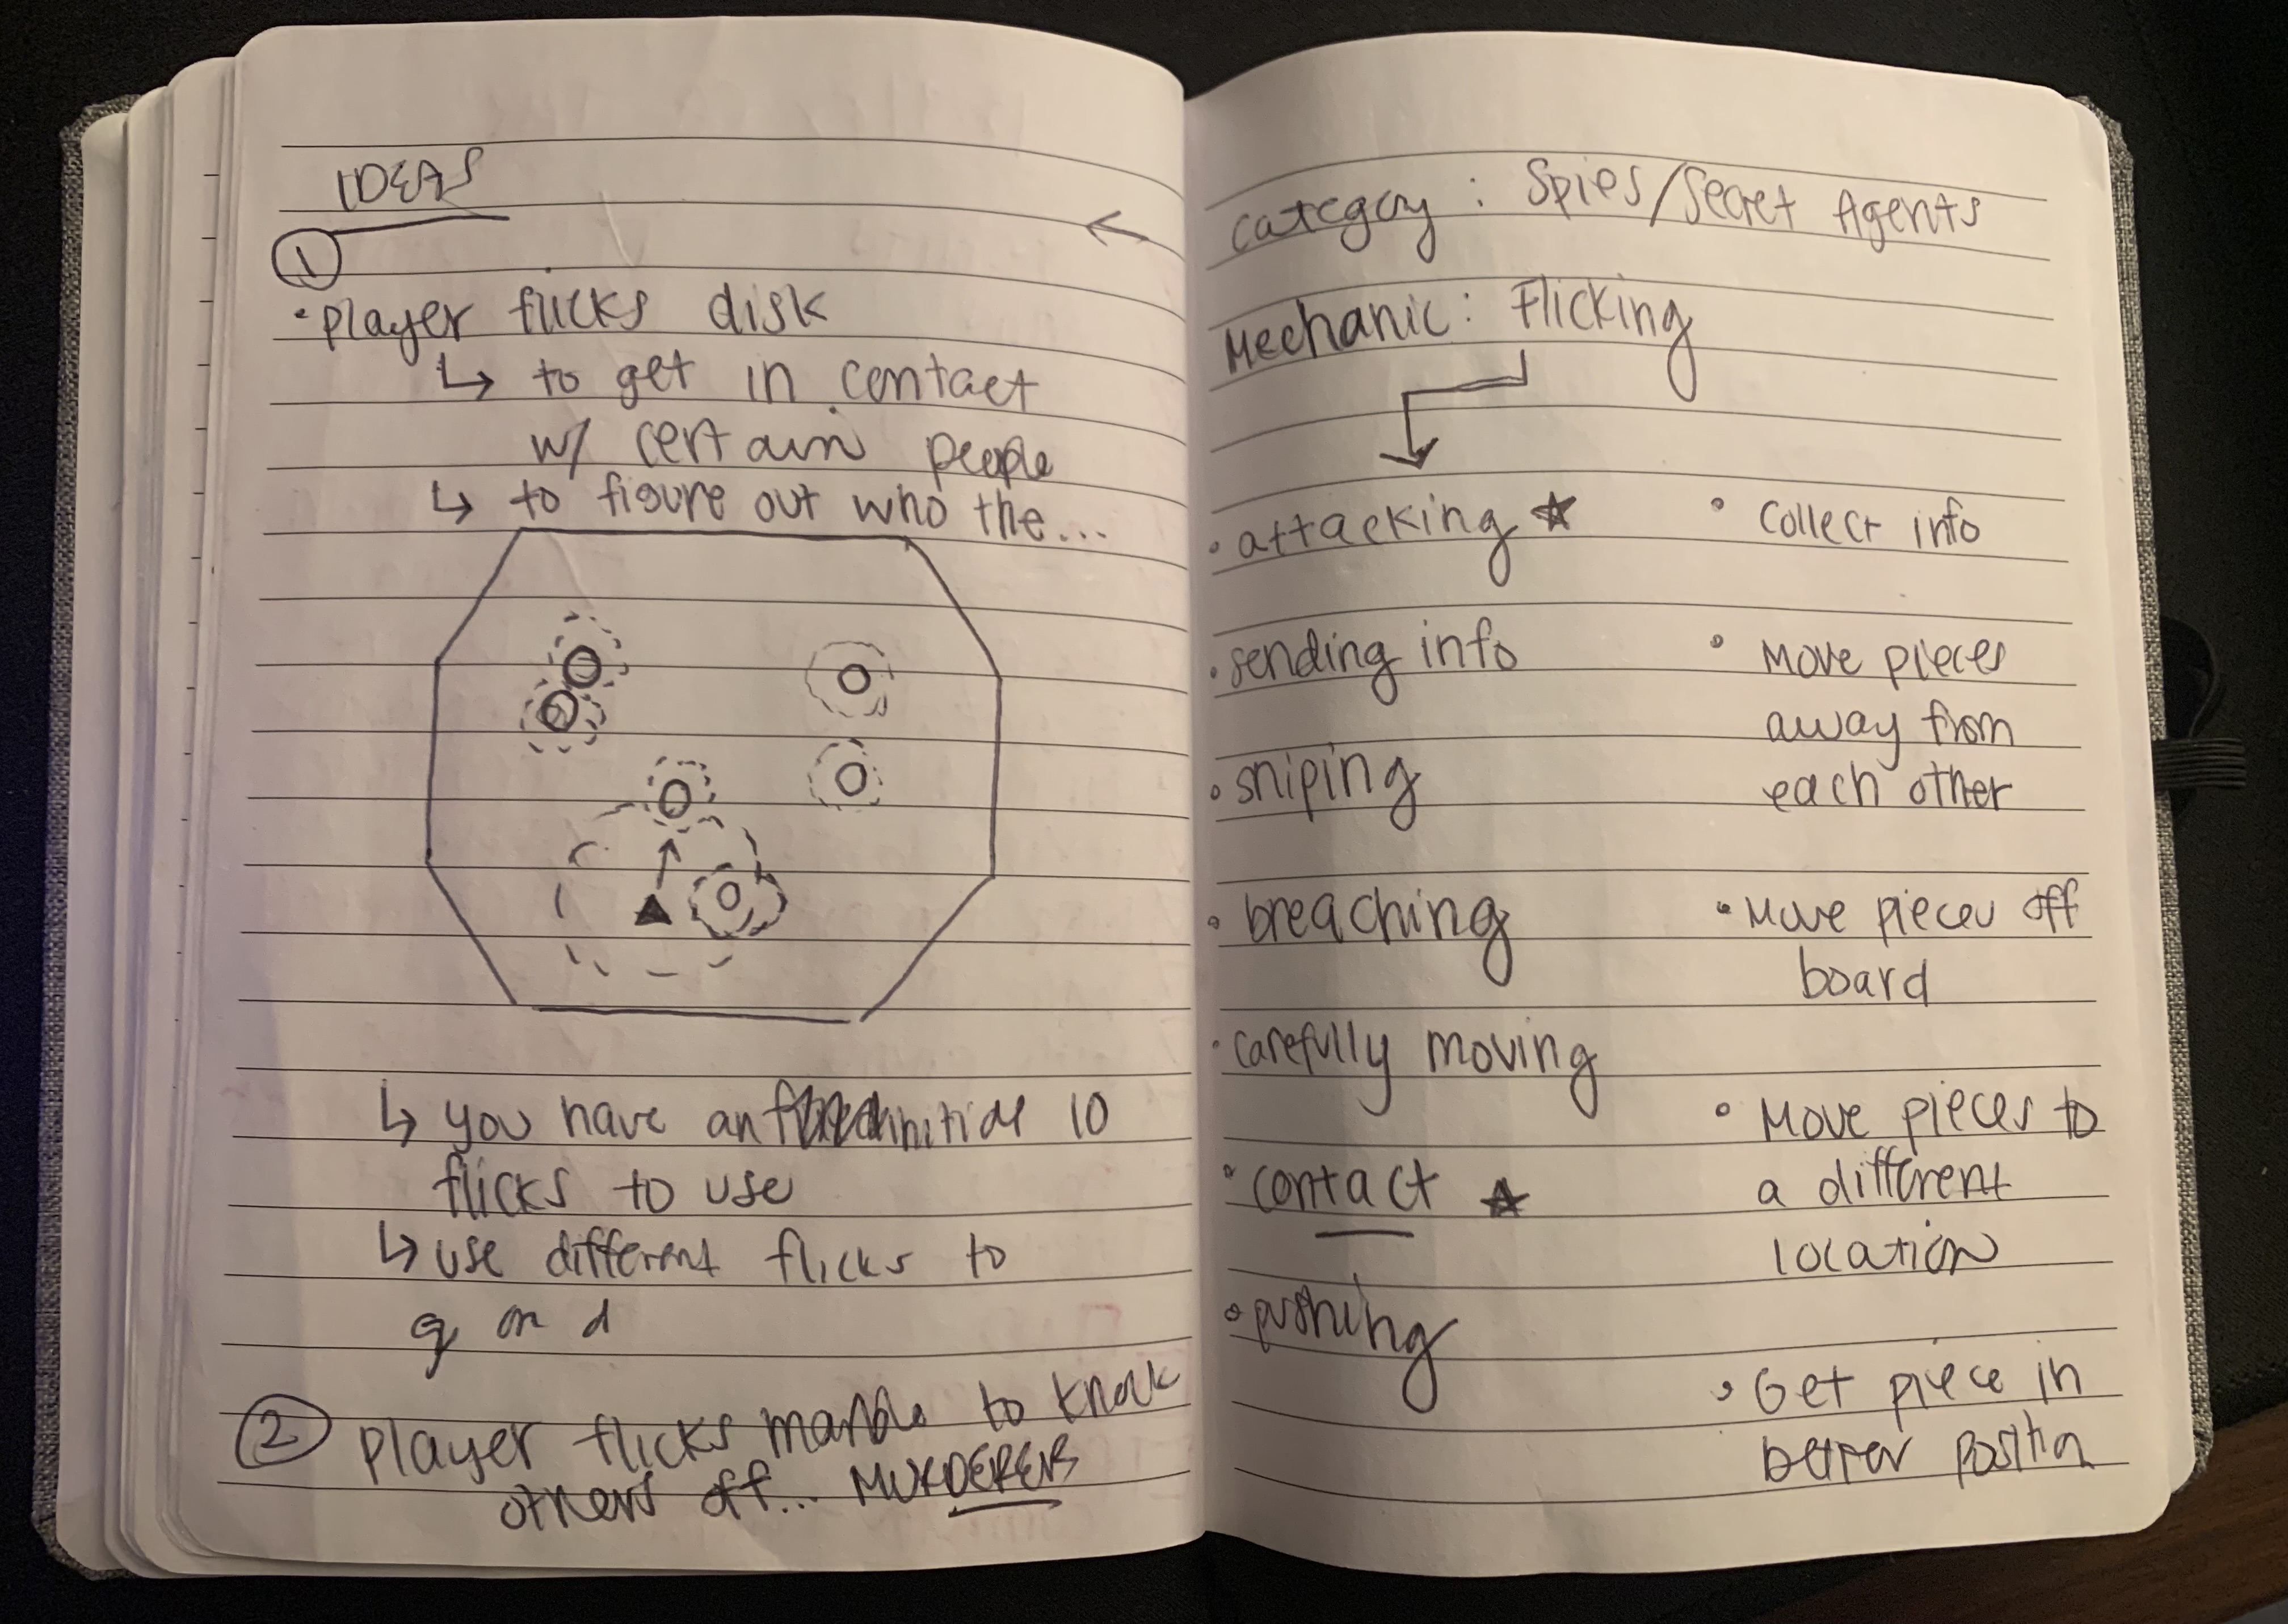 IDEAS
①
• player flicks disk
↳ to get in contact
w/ certain people
↳ to figure out who the...
↳ you have an initial 10
flicks to use
↳ use different flicks to
g on d
② Player flicks marble to knock
others off... MURDERERS
←
Category : Spies/Secret Agents
Mechanic: Flicking
• attacking ★
• sending info
• sniping
• breaching
• carefully moving
• contact ★
• pushing
• Collect info
• Move pieces
away from
each other
• Move pieces off
board
• Move pieces to
a different
location
• Get piece in
better position